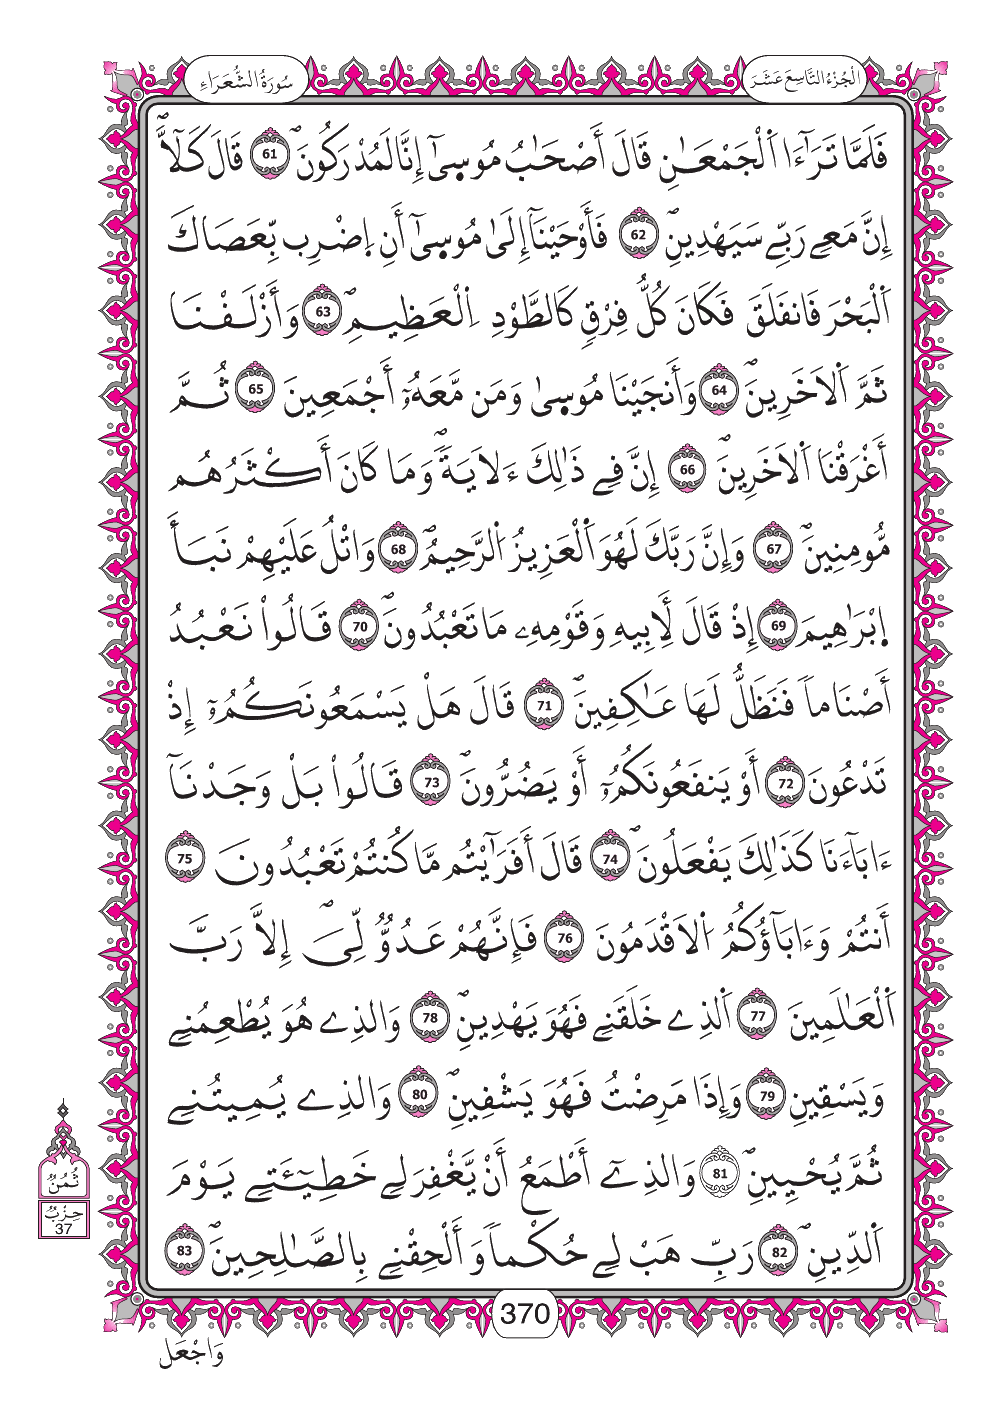 سُورَةُ الشُّعَرَاءِ
الْجُزْءُ التَّاسِعَ عَشَرَ
فَلَمَّا تَرَٰٓءَا اَ۬لْجَمْعَٰنِ قَالَ أَصْحَٰبُ مُوس۪ىٰٓ إِنَّا لَمُدْرَكُونَۖ 61 قَالَ كَلَّآۖ
إِنَّ مَعِے رَبِّے سَيَهْدِينِۖ 62 فَأَوْحَيْنَآ إِلَىٰ مُوس۪ىٰٓ أَنِ اِ۪ضْرِب بِّعَصَاكَ
اَ۬لْبَحْرَ فَانفَلَقَ فَكَانَ كُلُّ فِرْقٖ كَالطَّوْدِ اِ۬لْعَظِيمِۖ 63 وَأَزْلَفْنَا
ثَمَّ اَ۬لَاخَرِينَۖ 64 وَأَنجَيْنَا مُوس۪ىٰ وَمَن مَّعَهُۥٓ أَجْمَعِينَ 65 ثُمَّ
أَغْرَقْنَا اَ۬لَاخَرِينَۖ 66 إِنَّ فِے ذَٰلِكَ ءَلَايَةٗۖ وَمَا كَانَ أَكْثَرُهُم
مُّومِنِينَۖ 67 وَإِنَّ رَبَّكَ لَهُوَ اَ۬لْعَزِيزُ اُ۬لرَّحِيمُۖ 68 وَاتْلُ عَلَيْهِمْ نَبَأَ
اِ۪بْرَٰهِيمَ 69 إِذْ قَالَ لِأَبِيهِ وَقَوْمِهِۦ مَا تَعْبُدُونَۖ 70 قَالُواْ نَعْبُدُ
أَصْنَاماٗ فَنَظَلُّ لَهَا عَٰكِفِينَۖ 71 قَالَ هَلْ يَسْمَعُونَكُمُۥٓ إِذْ
تَدْعُونَ 72 أَوْ يَنفَعُونَكُمُۥٓ أَوْ يَضُرُّونَۖ 73 قَالُواْ بَلْ وَجَدْنَآ
ءَابَآءَنَا كَذَٰلِكَ يَفْعَلُونَۖ 74 قَالَ أَفَرَٰٓيْتُم مَّا كُنتُمْ تَعْبُدُونَ 75
أَنتُمْ وَءَابَآؤُكُمُ اُ۬لَاقْدَمُونَ 76 فَإِنَّهُمْ عَدُوّٞ لِّيَۖ إِلَّا رَبَّ
اَ۬لْعَٰلَمِينَ 77 اَ۬لذِے خَلَقَنِے فَهُوَ يَهْدِينِۖ 78 وَالذِے هُوَ يُطْعِمُنِے
وَيَسْقِينِ 79 وَإِذَا مَرِضْتُ فَهُوَ يَشْفِينِۖ 80 وَالذِے يُمِيتُنِے
ثُمَّ يُحْيِينِۖ 81 وَالذِےٓ أَطْمَعُ أَنْ يَّغْفِرَ لِے خَطِيٓـَٔتِے يَوْمَ
اَ۬لدِّينِۖ 82 رَبِّ هَبْ لِے حُكْماٗ وَأَلْحِقْنِے بِالصَّٰلِحِينَۖ 83
ثُمُنٌ
حِزْبٌ
37
370
وَاجْعَل